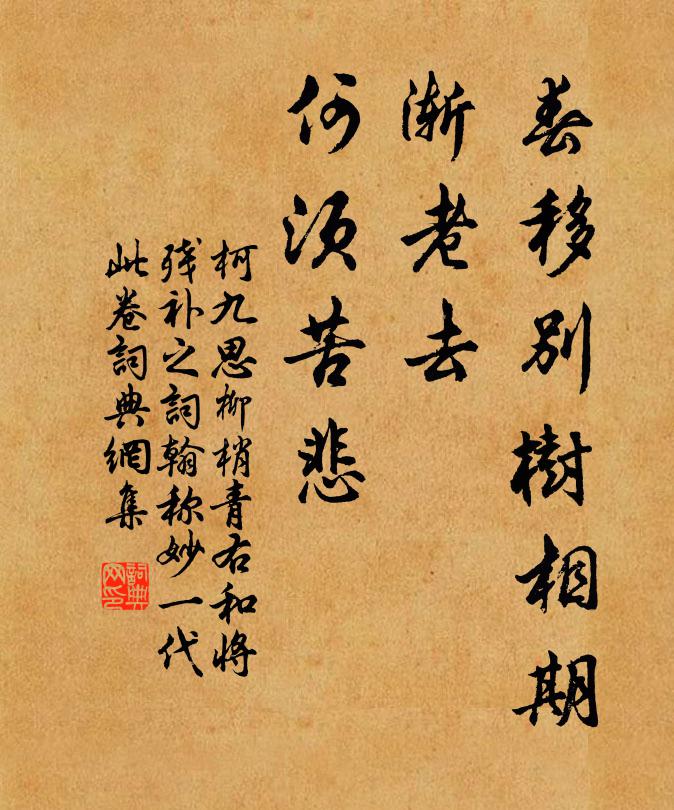 春移別樹相期
漸老去
何須苦悲
柯九思柳梢青右和将
残补之詞翰称妙一代
此卷詞典網集
詞典网印